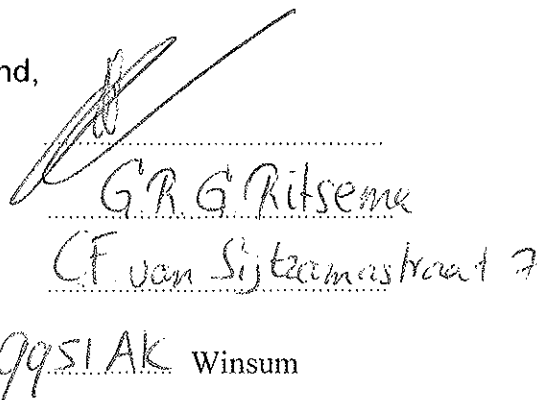 nd,
G.R.G. Ritsema
C.F. van Sijtzamastraat 7
9951 AK Winsum